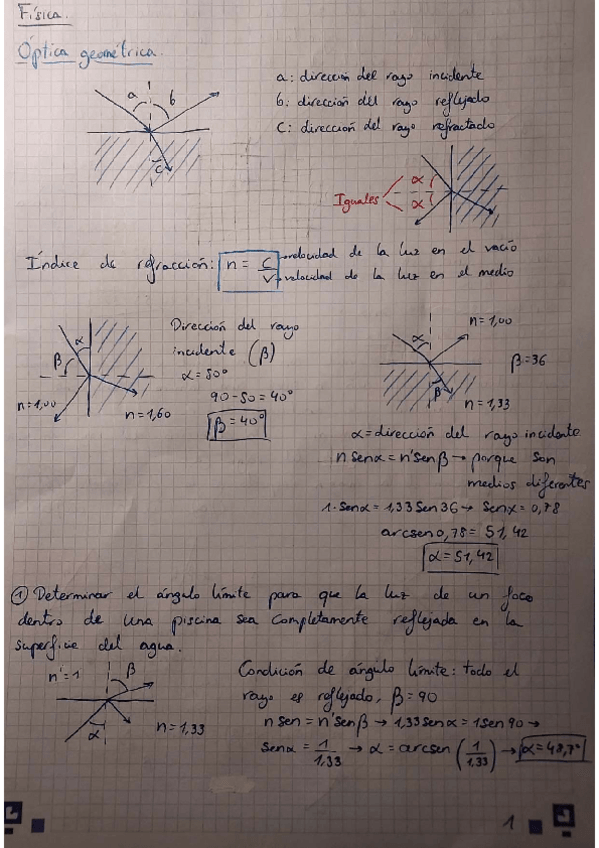 Física.
Óptica geométrica.
a: dirección del rayo incidente
b: dirección del rayo reflejado
C: dirección del rayo refractado
a b
c
Iguales α
α
Índice de refracción: n = C/V → velocidad de la luz en el vacío
→ velocidad de la luz en el medio
Dirección del rayo
incidente (β)
α = 50°
90 - 50 = 40°
β = 40°
α
β
n = 1,00
n = 1,60
n = 1,00
α
β = 36
β
n = 1,33
α = dirección del rayo incidente
n senα = n' senβ → porque son
medios diferentes
1 · senα = 1,33 sen 36 → senx = 0,78
arcsen 0,78 = 51,42
α = 51,42
① Determinar el ángulo límite para que la luz de un foco
dentro de una piscina sea completamente reflejada en la
superficie del agua.
n' = 1
β
n = 1,33
α
Condición de ángulo límite: todo el
rayo es reflejado, β = 90
n sen = n' senβ → 1,33 senα = 1 sen 90 →
senα = 1/1,33 → α = arcsen (1/1,33) → α = 48,7°
1